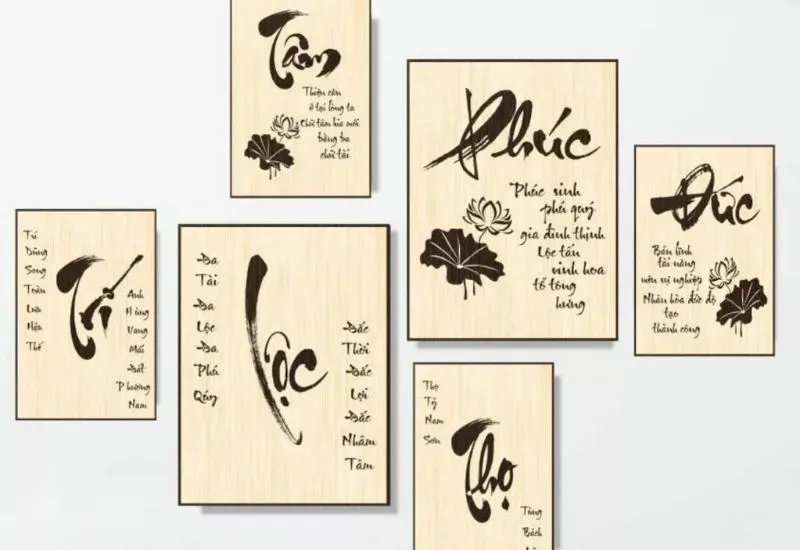 Tâm
Thiện căn
ở tại lòng ta
Chữ tâm kia mới
bằng ba
chữ tài
Phúc
Phúc sinh
phú quý
gia đình thịnh
Lộc tấn
vinh hoa
tổ tông
hưng
Đức
Bản lĩnh
tài năng
nên sự nghiệp
Nhân hòa đức độ
tạo
thành công
Trí
Trí
Dũng
Song
Toàn
Lưu
Hậu
Thế
Anh
Hùng
Vang
Mãi
Đất
Phương
Nam
Lộc
Đa
Tài
Đa
Lộc
Đa
Phú
Quý
Đắc
Thời
Đắc
Lợi
Đắc
Nhâm
Tâm
Thọ
Thọ
Tỷ
Nam
Sơn
Tùng
Bách